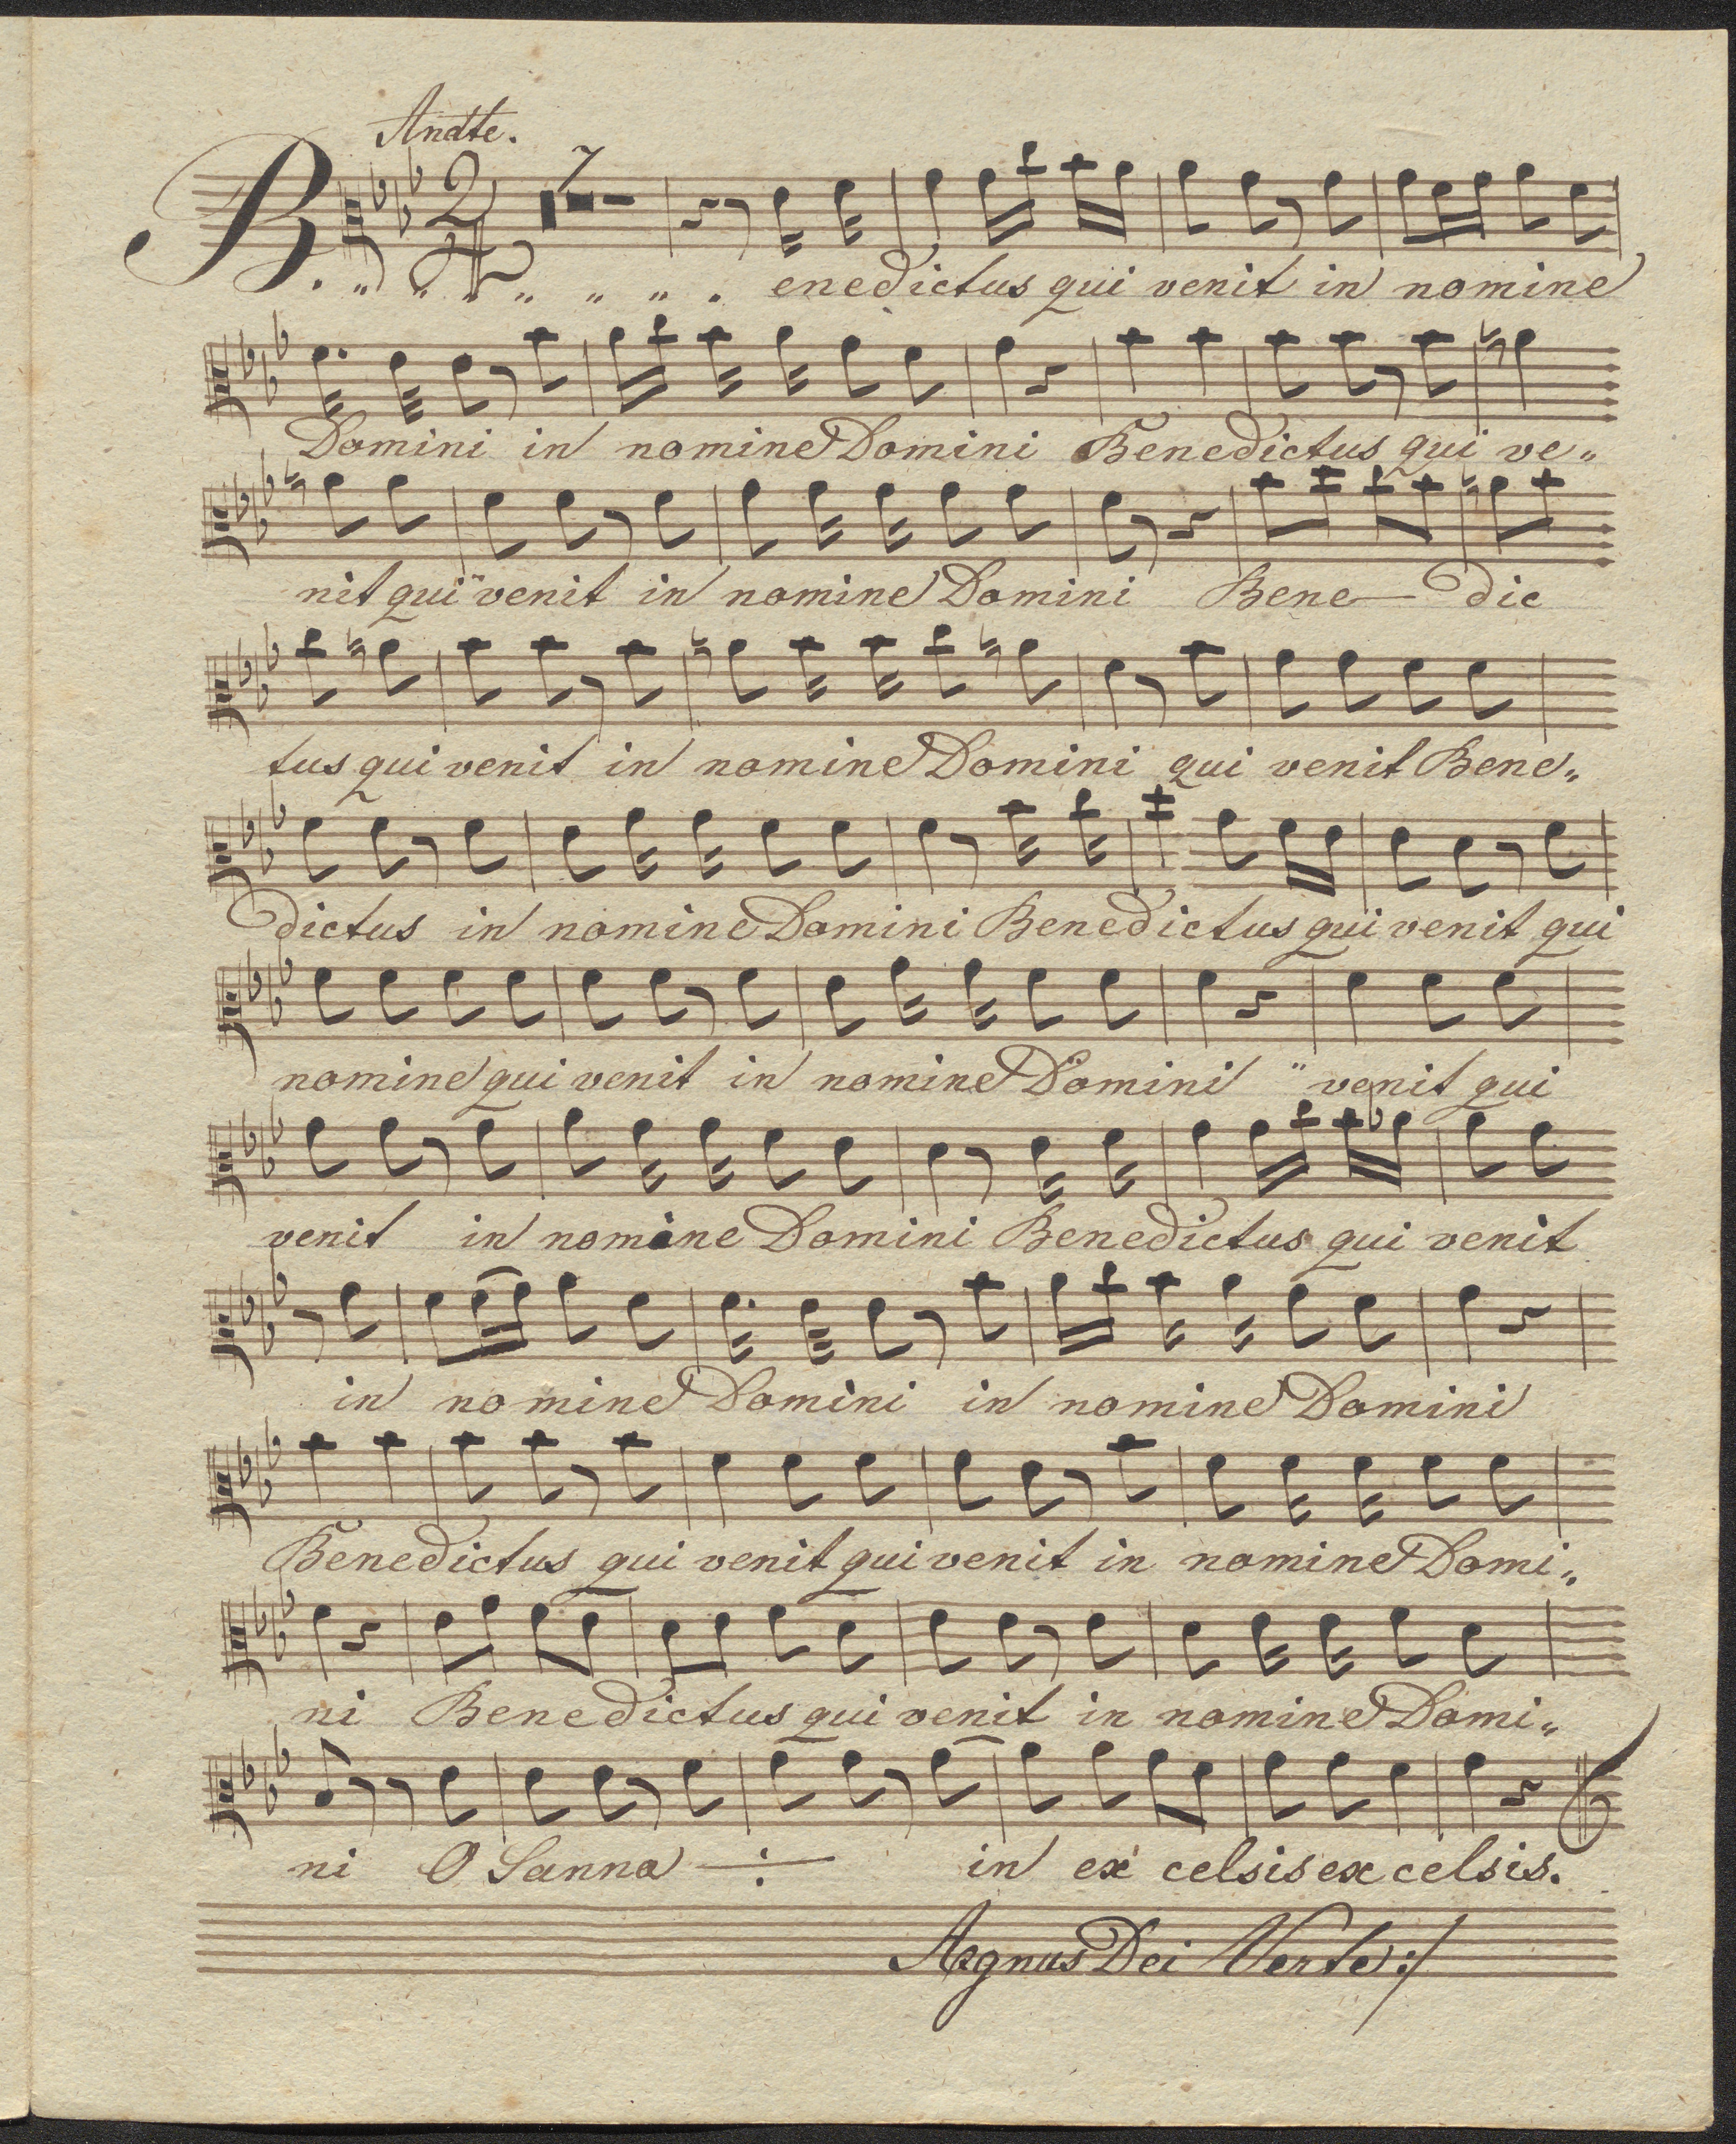 Andte.
B. " " " " " " . enedictus qui venit in nomine
7
Domini in nomine Domini Benedictus qui ve"
nit qui venit in nomine Domini Bene— dic
tus qui venit in nomine Domini qui venit Bene"
dictus in nomine Domini Benedictus qui venit qui
nomine qui venit in nomine Domini " venit qui
venit in nomine Domini Benedictus qui venit
in nomine Domini in nomine Domini
Benedictus qui venit qui venit in nomine Domi"
ni Benedictus qui venit in nomine Domi"
ni O Sanna ÷ in ex celsis ex celsis.
Agnus Dei Verte:/